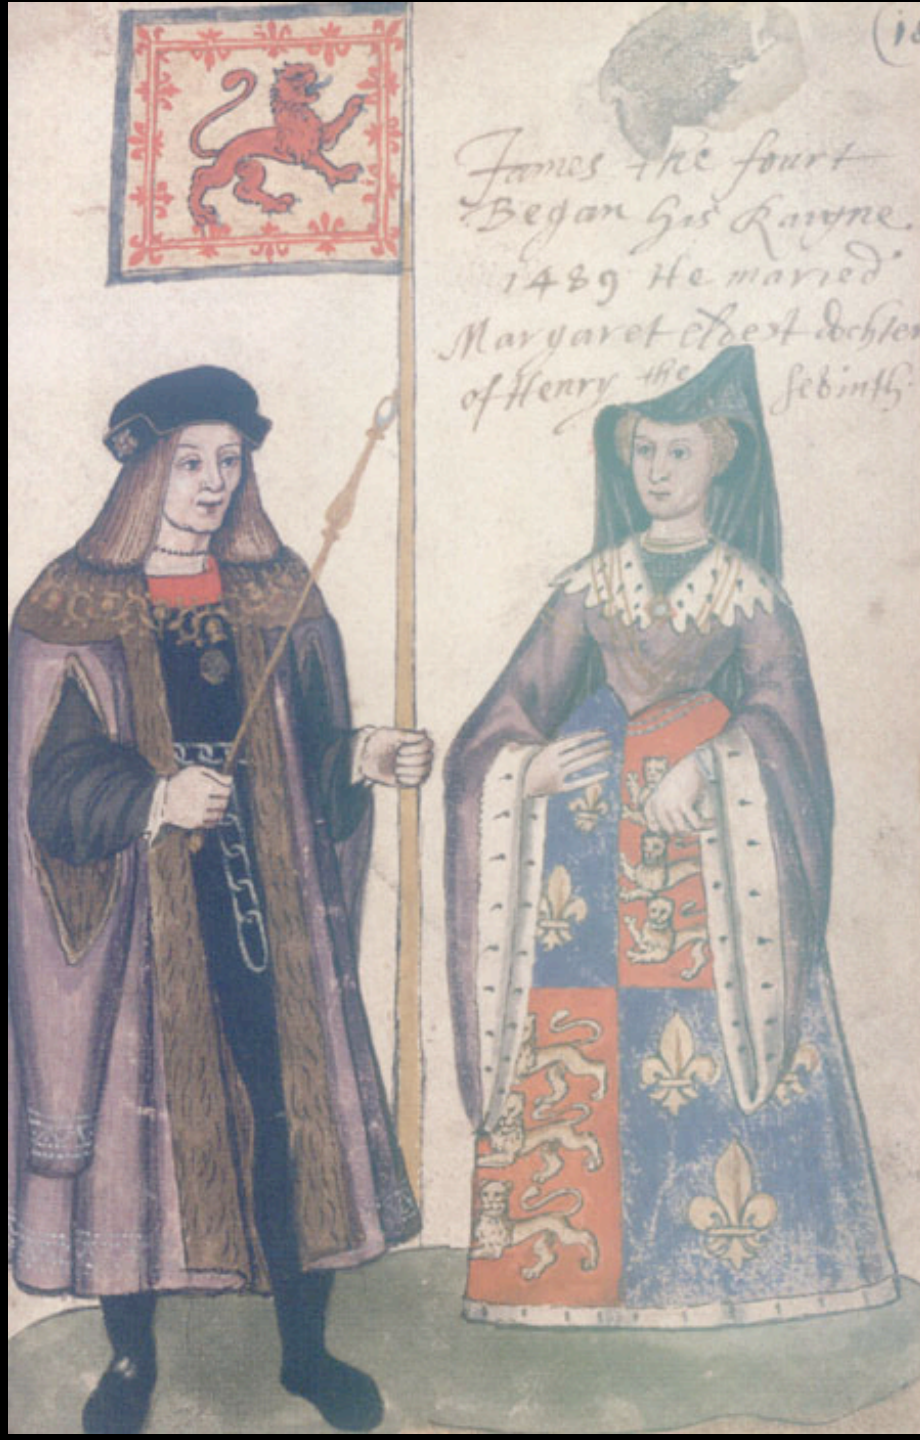 (18
James the fourt
Began his Raigne
1489 He maried
Margaret eldest dochter
of Henry the sevinth